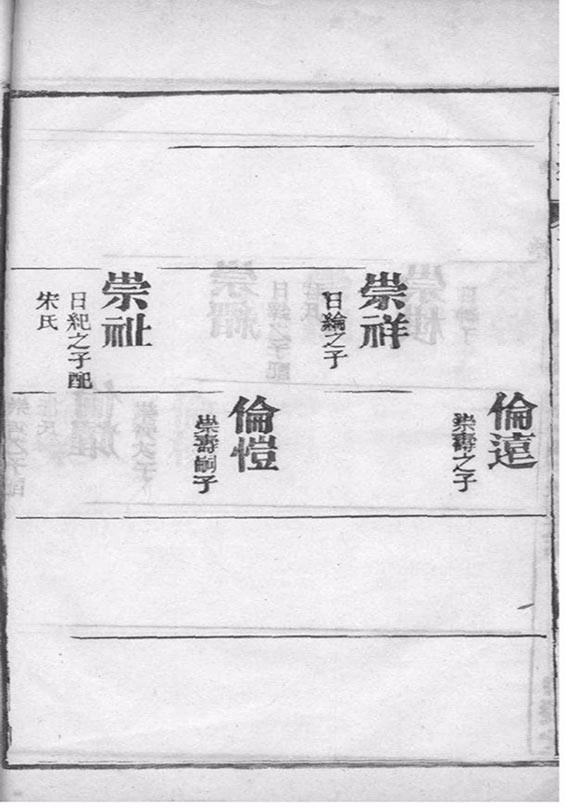 崇祥
日綸之子
崇祉
日紀之子配
宋氏
倫遠
崇壽之子
倫愷
崇壽嗣子